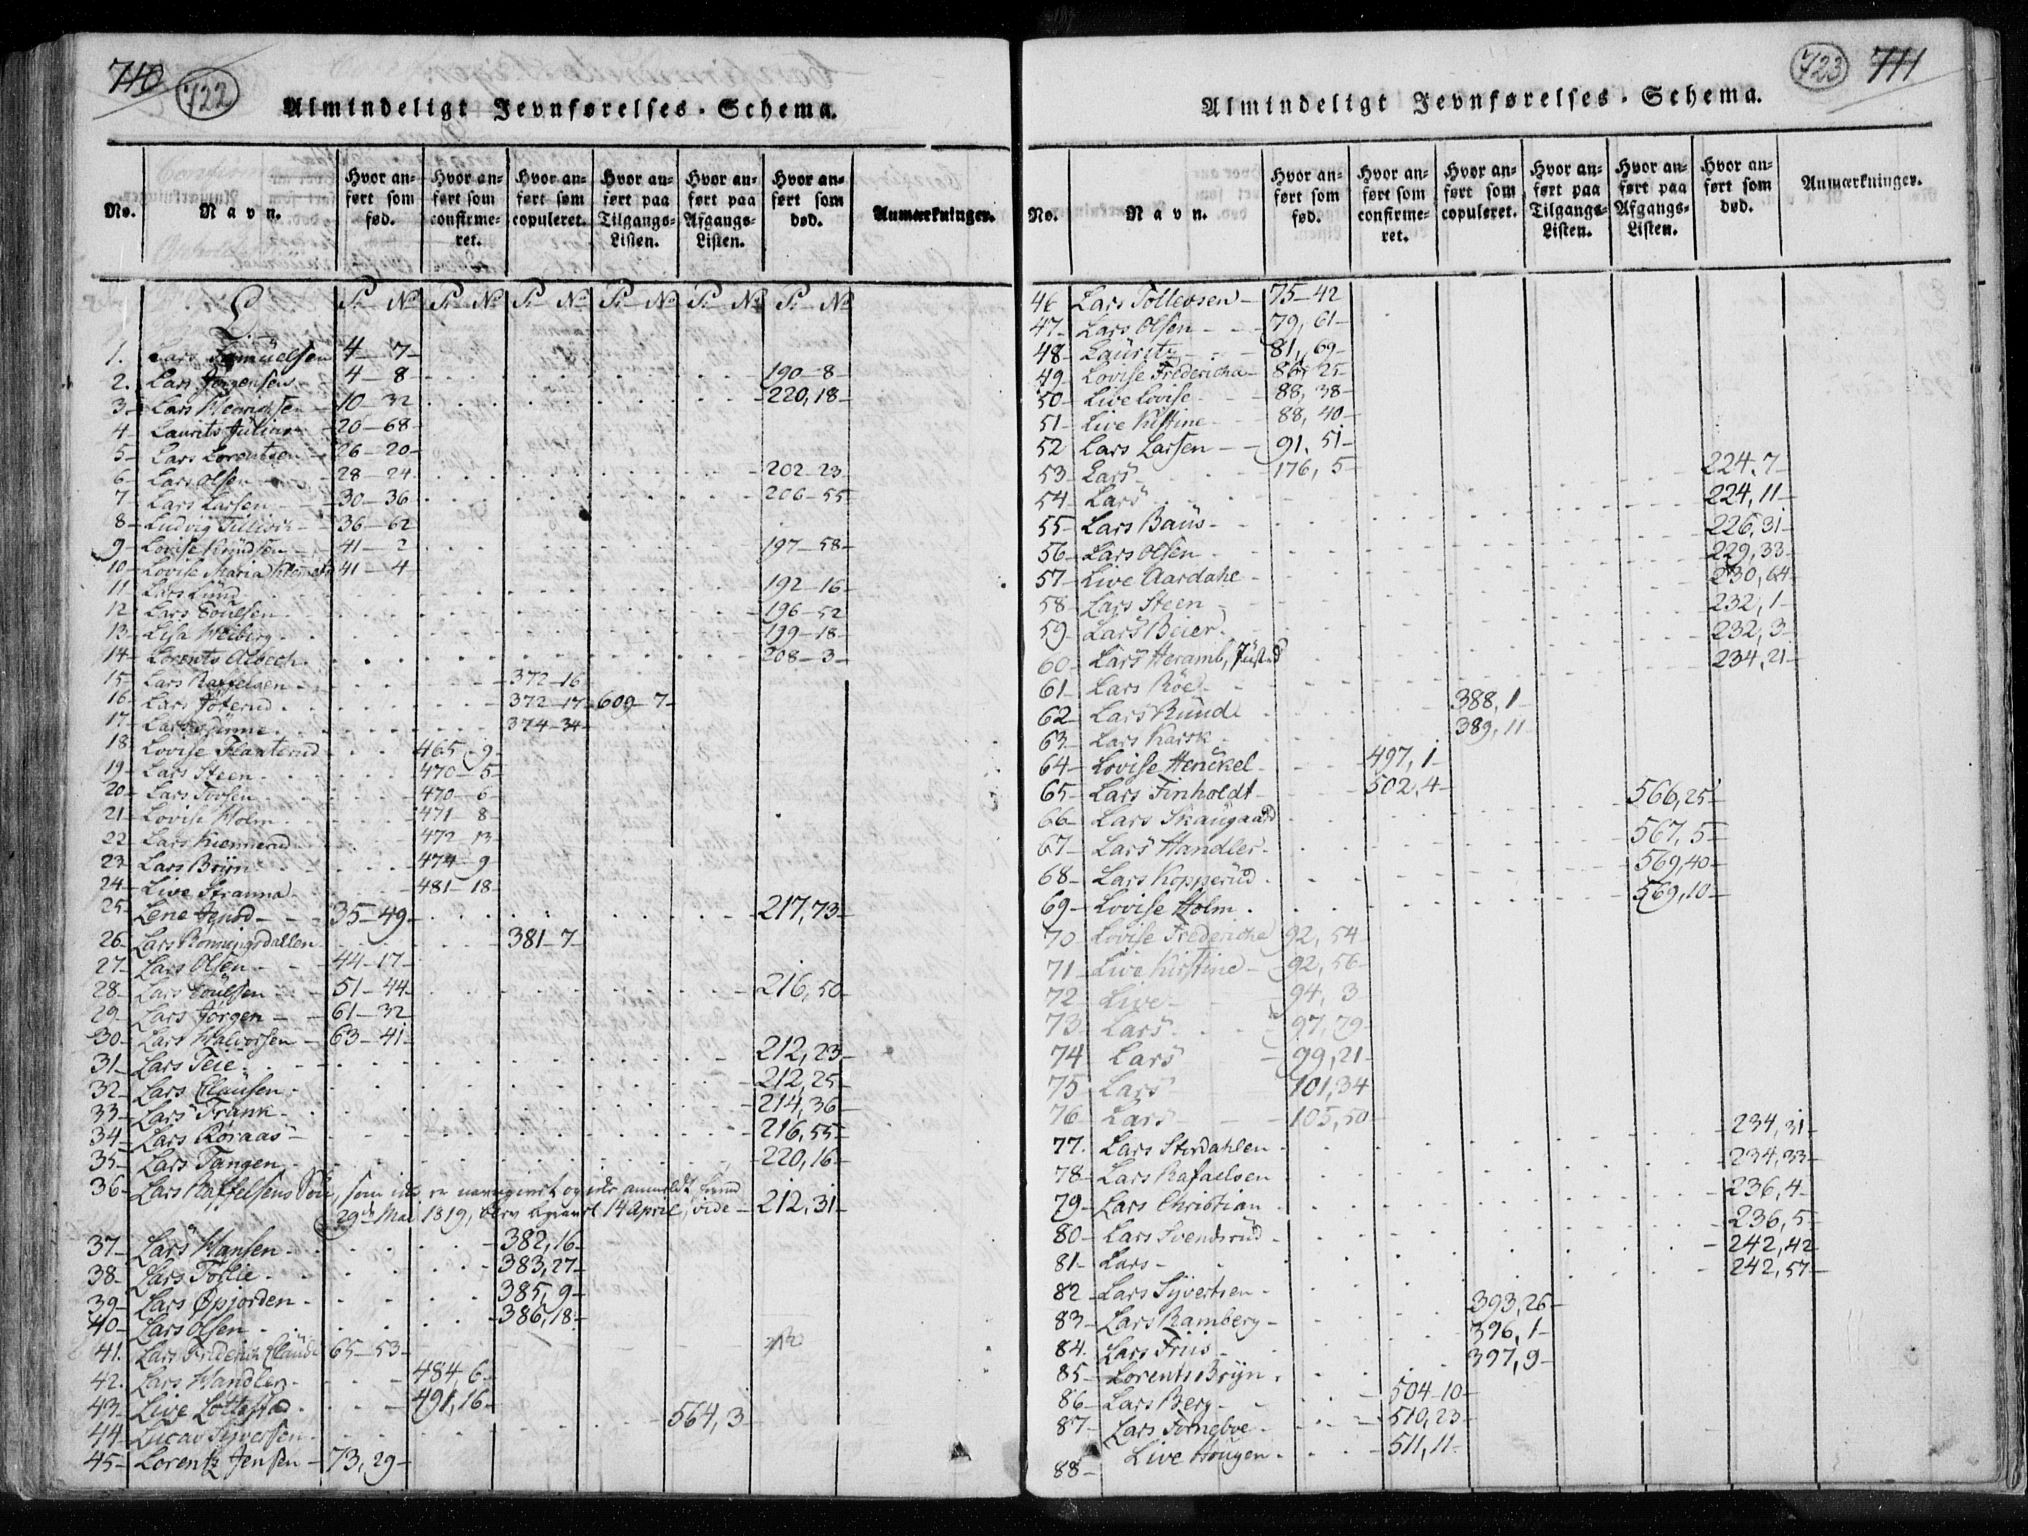 740 722
Almindeligt Jevnførelses-Schema.
No. Navn. Hvor anført som fød. Hvor anført som confirmeret. Hvor anført som copuleret. Hvor anført paa Tilgangs-Listen. Hvor anført paa Afgangs-Listen. Hvor anført som død. Anmærkninger.
L. P. No P. No P. No P. No P. No P. No
1. Lars Samuelsen 4-7-
2. Lars Jørgensen 4-8- 190-8-
3- 10-32 220,18-
4- Laurits Julius 20-68-
5- Lars Lorentsen 26-20-
6- Lars Olsen 28-24 202-23
7 Lars Larsen 30-36 206-55
8- Ludvig 36-62
9- Lovise Knudsen 41-2 197-58-
10- Lovise Maria 41-4
11 Lars Lund 192-16-
12 Lars Poulsen 196-52
13- Lisa Weiberg 199-18-
14- Lorents Albech 208-3-
15- Lars Raffelsen 372-16
16- Lars 372-17- 609-7-
17- Lars 374-34-
18 Lovise 465-9-
19- Lars Steen 470-5-
20- Lars 470-6-
21- Lovise Holm 471-8-
22- Lars 472-13
23- Lars Bryn 474-9
24- Live Stranna 481-18-
25- Lene 35-49- 217,73-
26- Lars Romingsdallen 381-7-
27- Lars Olsen 44-17-
28- Lars Poulsen 51-44- 216,50-
29- Lars Jørgen 61-32
30- Lars Halvorsen 63-41- 212,23-
31- Lars Teie 212,25-
32- Lars Clausen 214,36-
33- Lars Frank 216,55-
34- Lars Roraas 220,16-
35- Lars Tangen
36- Lars Raffelsens Søn, som ike er navngivet og ike anmeldt fød
29de Mai 1819, blev 14 April, vide 212,31-
37- Lars Hansen 382,16-
38- Lars Toflie 383,27-
39- Lars Opjorden 385,9-
40- Lars Olsen 386,18-
41. Lars Friderich 65-53-
42. Lars Handler 484,6-
43- Live 491,16-
44- Lucas Syversen 564,3
45- Lorentz Jensen 73,29-
723 711
Almindeligt Jevnførelses-Schema.
No. Navn. Hvor anført som fød. Hvor anført som confirmeret. Hvor anført som copuleret. Hvor anført paa Tilgangs-Listen. Hvor anført paa Afgangs-Listen. Hvor anført som død. Anmærkninger.
46 Lars Tollevsen 75-42
47- Lars Olsen 79,61-
48- Lauritz 81,69-
49- Lovise Fredericha 86,25-
50- Live Lovise 88,38-
51- Live Kistine 88,40-
52 Lars Larsen 91,51-
53- Lars 176,5- 224,7-
54- Lars 224,11-
55- Lars Baus 226,31
56- Lars Olsen 229,33
57- Live Aardahe 230,64-
58- Lars Steen 232,1-
59- Lars Beier 232,3
60- Lars Heramb, 234,21-
61- Lars Röe
62- Lars Runde 388,1-
63- Lars Karsk 389,11-
64- Lovise Henckel 497,1-
65- Lars Finholdt 502,4- 566,25-
66- Lars Skaugaard
67- Lars Handler 567,5-
68- Lars Kopperud 569,40-
69- Lovise Holm 569,10-
70 Lovise Fredericke 92,54
71- Live Kirstine 92,56-
72- Live 94,3
73- Lars 97,79-
74 Lars 99,21-
75- Lars 101,34
76- Lars 105,50-
77. Lars Stordahlen 234,31-
78- Lars Rafaelsen 234,33-
79- Lars Christian 236,4-
80- Lars Svendsrud 236,5-
81- Lars 242,42-
82 Lars Syvertsen 242,57-
83- Lars Ramberg 393,26-
84. Lars Friis 396,1-
85- Lorents Bryn 397,9-
86- Lars Berg 504-10-
87- Lars Forneboe 510,23-
88- Live Hougen 511,11-